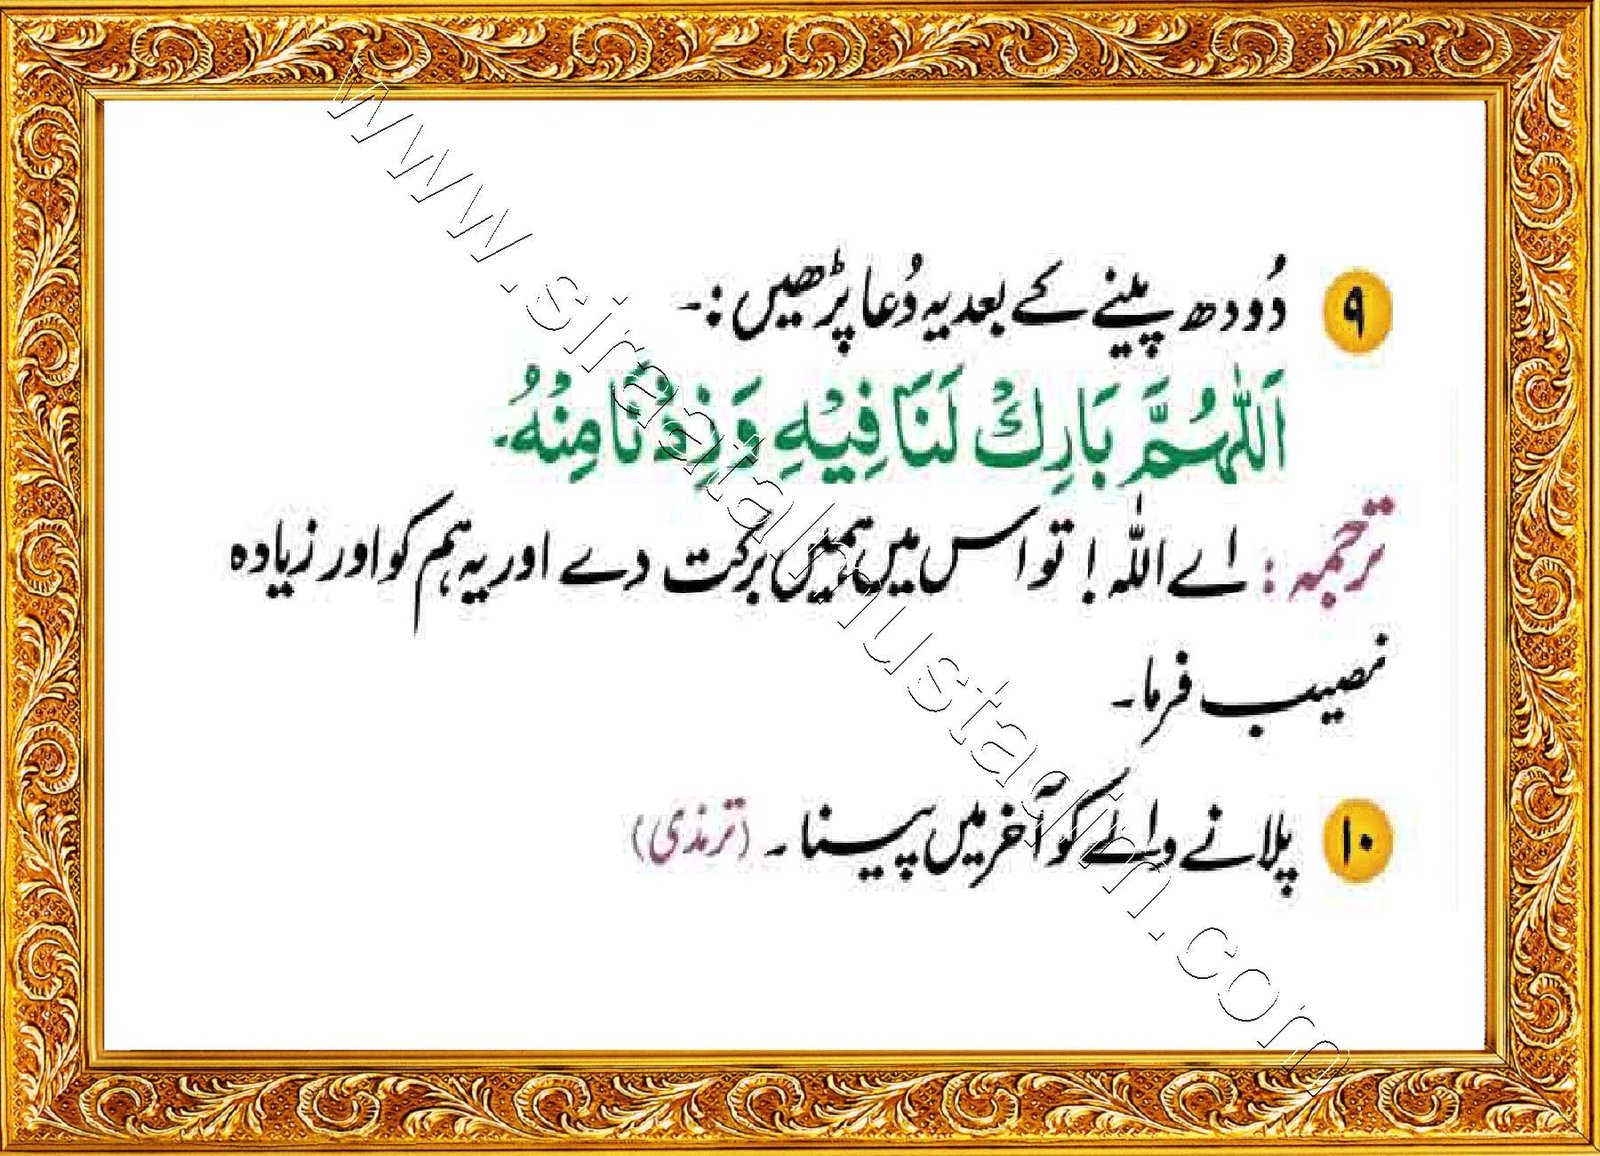 ۹ دُودھ پینے کے بعد یہ دُعا پڑھیں :-
اَللّٰهُمَّ بَارِكْ لَنَا فِيْهِ وَزِدْنَا مِنْهُ۔
ترجمہ : اے اللّٰہ ! تو اس میں ہمیں برکت دے اور یہ ہم کو اور زیادہ
نصیب فرما۔
۱۰ پلانے والے کو آخر میں پینا۔ (ترمذی)
www.siraatalmustaqim.com